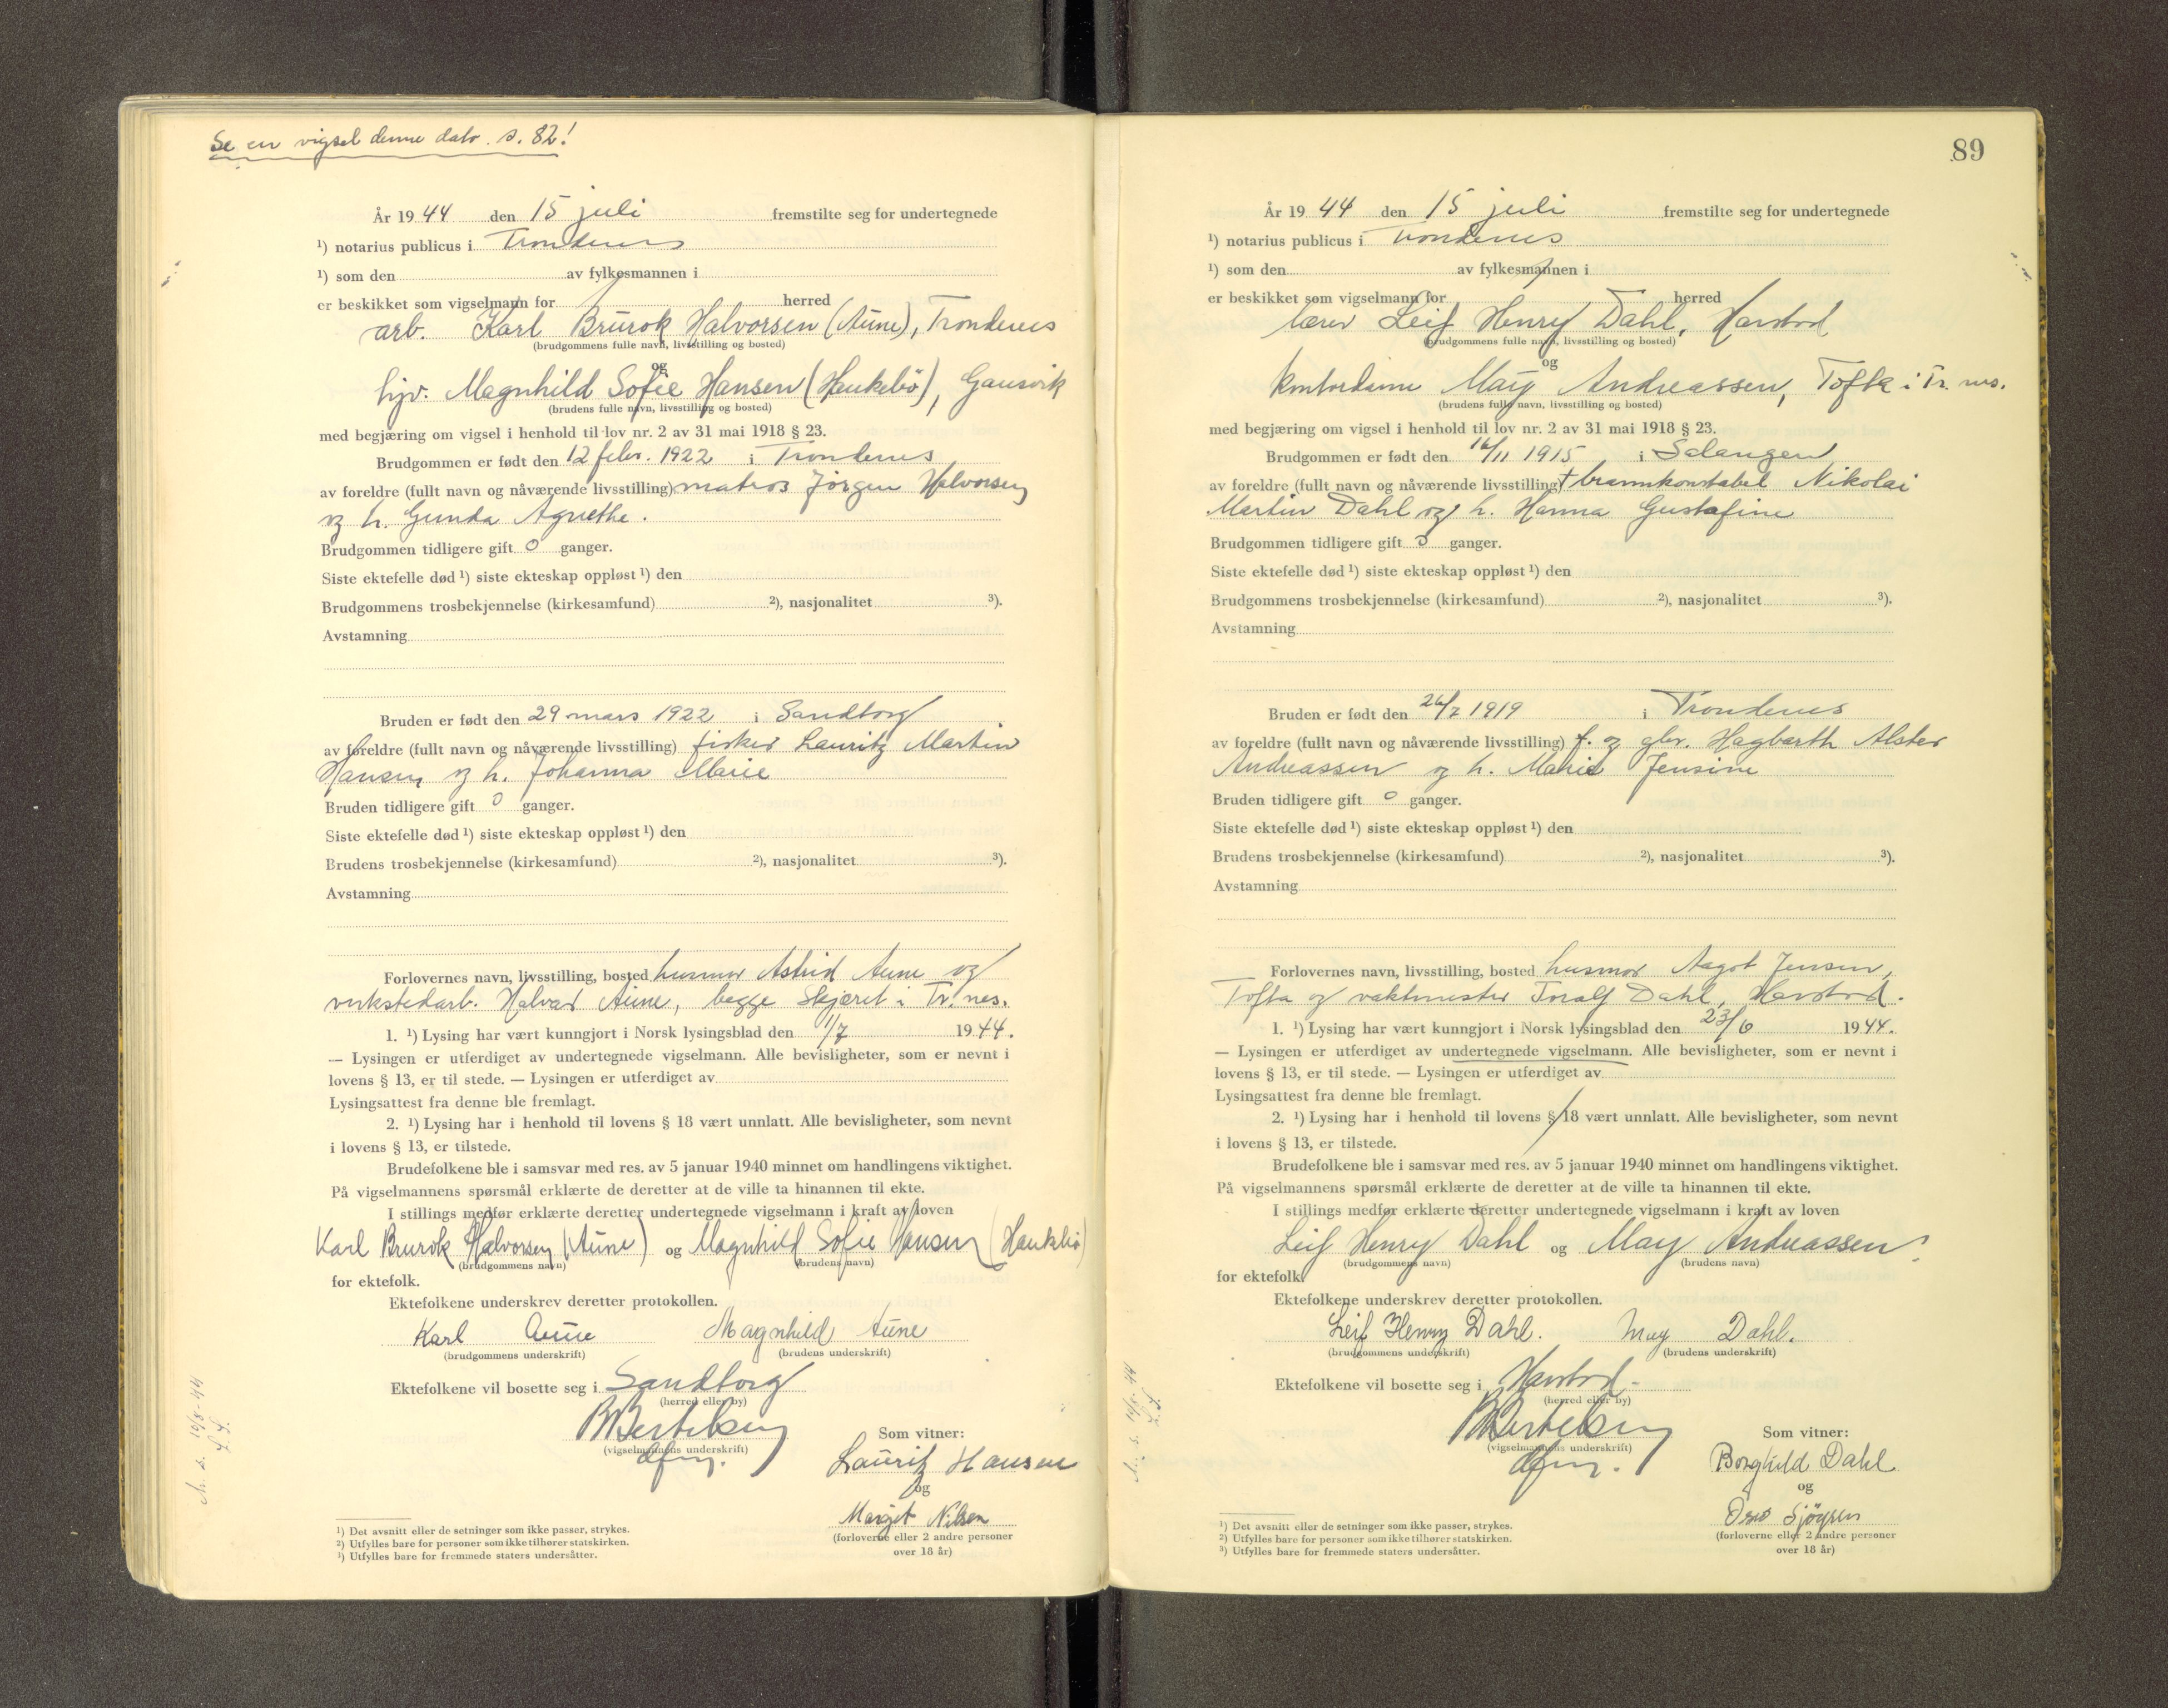 Se en vigsel denne dato. s. 82!
År 1944 den 15 juli fremstilte seg for undertegnede
¹) notarius publicus i Trondenes
¹) som den av fylkesmannen i
er beskikket som vigselmann for herred
arb. Karl Brurok Halvorsen (Aune), Trondenes
(brudgommens fulle navn, livsstilling og bosted)
og
hjv. Magnhild Sofie Hansen (Haukebø), Gausvik
(brudens fulle navn, livsstilling og bosted)
med begjæring om vigsel i henhold til lov nr. 2 av 31 mai 1918 § 23.
Brudgommen er født den 12 febr. 1922 i Trondenes
av foreldre (fullt navn og nåværende livsstilling) matros Jørgen Halvorsen
og h. Gunda Agnethe.
Brudgommen tidligere gift 0 ganger.
Siste ektefelle død ¹) siste ekteskap oppløst ¹) den
Brudgommens trosbekjennelse (kirkesamfund) ²), nasjonalitet ³).
Avstamning
Bruden er født den 29 mars 1922 i Sandtorg
av foreldre (fullt navn og nåværende livsstilling) fisker Lauritz Martin
Hansen og h. Johanna Marie
Bruden tidligere gift 0 ganger.
Siste ektefelle død ¹) siste ekteskap oppløst ¹) den
Brudens trosbekjennelse (kirkesamfund) ²), nasjonalitet ³).
Avstamning
Forlovernes navn, livsstilling, bosted husmor Astrid Aune og
verkstedarb. Halvar Aune, begge Skjæret i Tr.nes.
1. ¹) Lysing har vært kunngjort i Norsk lysingsblad den 1/7 1944.
— Lysingen er utferdiget av undertegnede vigselmann. Alle bevisligheter, som er nevnt i
lovens § 13, er til stede. — Lysingen er utferdiget av
Lysingsattest fra denne ble fremlagt.
2. ¹) Lysing har i henhold til lovens § 18 vært unnlatt. Alle bevisligheter, som nevnt
i lovens § 13, er tilstede.
Brudefolkene ble i samsvar med res. av 5 januar 1940 minnet om handlingens viktighet.
På vigselmannens spørsmål erklærte de deretter at de ville ta hinannen til ekte.
I stillings medfør erklærte deretter undertegnede vigselmann i kraft av loven
Karl Brurok Halvorsen (Aune) og Magnhild Sofie Hansen (Haukebø)
(brudgommens navn) (brudens navn)
for ektefolk.
Ektefolkene underskrev deretter protokollen.
Karl Aune Magnhild Aune
(brudgommens underskrift) (brudens underskrift)
Ektefolkene vil bosette seg i Sandtorg
(herred eller by)
B Bertelsen
(vigselmannens underskrift)
Som vitner:
Lauritz Hansen
og
Marget Nilsen
(forloverne eller 2 andre personer
over 18 år)
¹) Det avsnitt eller de setninger som ikke passer, strykes.
²) Utfylles bare for personer som ikke tilhører statskirken.
³) Utfylles bare for fremmede staters undersåtter.
89
År 1944 den 15 juli fremstilte seg for undertegnede
¹) notarius publicus i Trondenes
¹) som den av fylkesmannen i
er beskikket som vigselmann for herred
lærer Leif Henry Dahl, Harstad
(brudgommens fulle navn, livsstilling og bosted)
og
kontordame May Andreassen, Tofta i Tr.nes.
(brudens fulle navn, livsstilling og bosted)
med begjæring om vigsel i henhold til lov nr. 2 av 31 mai 1918 § 23.
Brudgommen er født den 16/11 1915 i Salangen
av foreldre (fullt navn og nåværende livsstilling) † brannkonstabel Nikolai
Martin Dahl og h. Hanna Gustafine
Brudgommen tidligere gift 0 ganger.
Siste ektefelle død ¹) siste ekteskap oppløst ¹) den
Brudgommens trosbekjennelse (kirkesamfund) ²), nasjonalitet ³).
Avstamning
Bruden er født den 26/7 1919 i Trondenes
av foreldre (fullt navn og nåværende livsstilling) f. og gbr. Hagbarth Alster
Andreassen og h. Marie Jensine
Bruden tidligere gift 0 ganger.
Siste ektefelle død ¹) siste ekteskap oppløst ¹) den
Brudens trosbekjennelse (kirkesamfund) ²), nasjonalitet ³).
Avstamning
Forlovernes navn, livsstilling, bosted husmor Aagot Jensen,
Tofta og vaktmester Toralf Dahl, Harstad.
1. ¹) Lysing har vært kunngjort i Norsk lysingsblad den 23/6 1944.
— Lysingen er utferdiget av undertegnede vigselmann. Alle bevisligheter, som er nevnt i
lovens § 13, er til stede. — Lysingen er utferdiget av
Lysingsattest fra denne ble fremlagt.
2. ¹) Lysing har i henhold til lovens § 18 vært unnlatt. Alle bevisligheter, som nevnt
i lovens § 13, er tilstede.
Brudefolkene ble i samsvar med res. av 5 januar 1940 minnet om handlingens viktighet.
På vigselmannens spørsmål erklærte de deretter at de ville ta hinannen til ekte.
I stillings medfør erklærte deretter undertegnede vigselmann i kraft av loven
Leif Henry Dahl og May Andreassen
(brudgommens navn) (brudens navn)
for ektefolk.
Ektefolkene underskrev deretter protokollen.
Leif Henry Dahl. May Dahl.
(brudgommens underskrift) (brudens underskrift)
Ektefolkene vil bosette seg i Harstad.
(herred eller by)
B Bertelsen
(vigselmannens underskrift)
Som vitner:
Borghild Dahl
og
(forloverne eller 2 andre personer
over 18 år)
¹) Det avsnitt eller de setninger som ikke passer, strykes.
²) Utfylles bare for personer som ikke tilhører statskirken.
³) Utfylles bare for fremmede staters undersåtter.